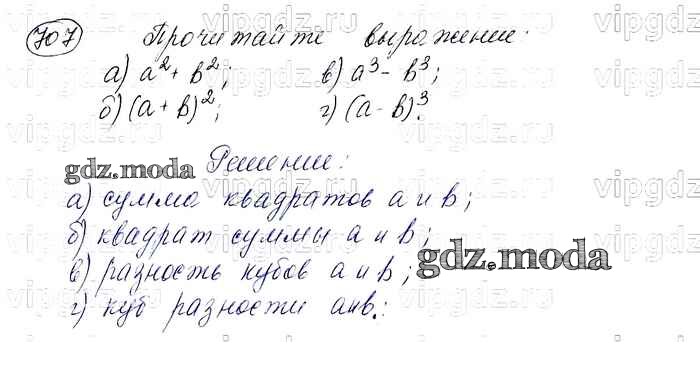 707 Прочитайте выражение:
а) a² + b²; в) a³ - b³;
б) (a + b)²; г) (a - b)³.
Решение:
а) сумма квадратов a и b;
б) квадрат суммы a и b;
в) разность кубов a и b;
г) куб разности a и b.
gdz.moda
gdz.moda
vipgdz.ru